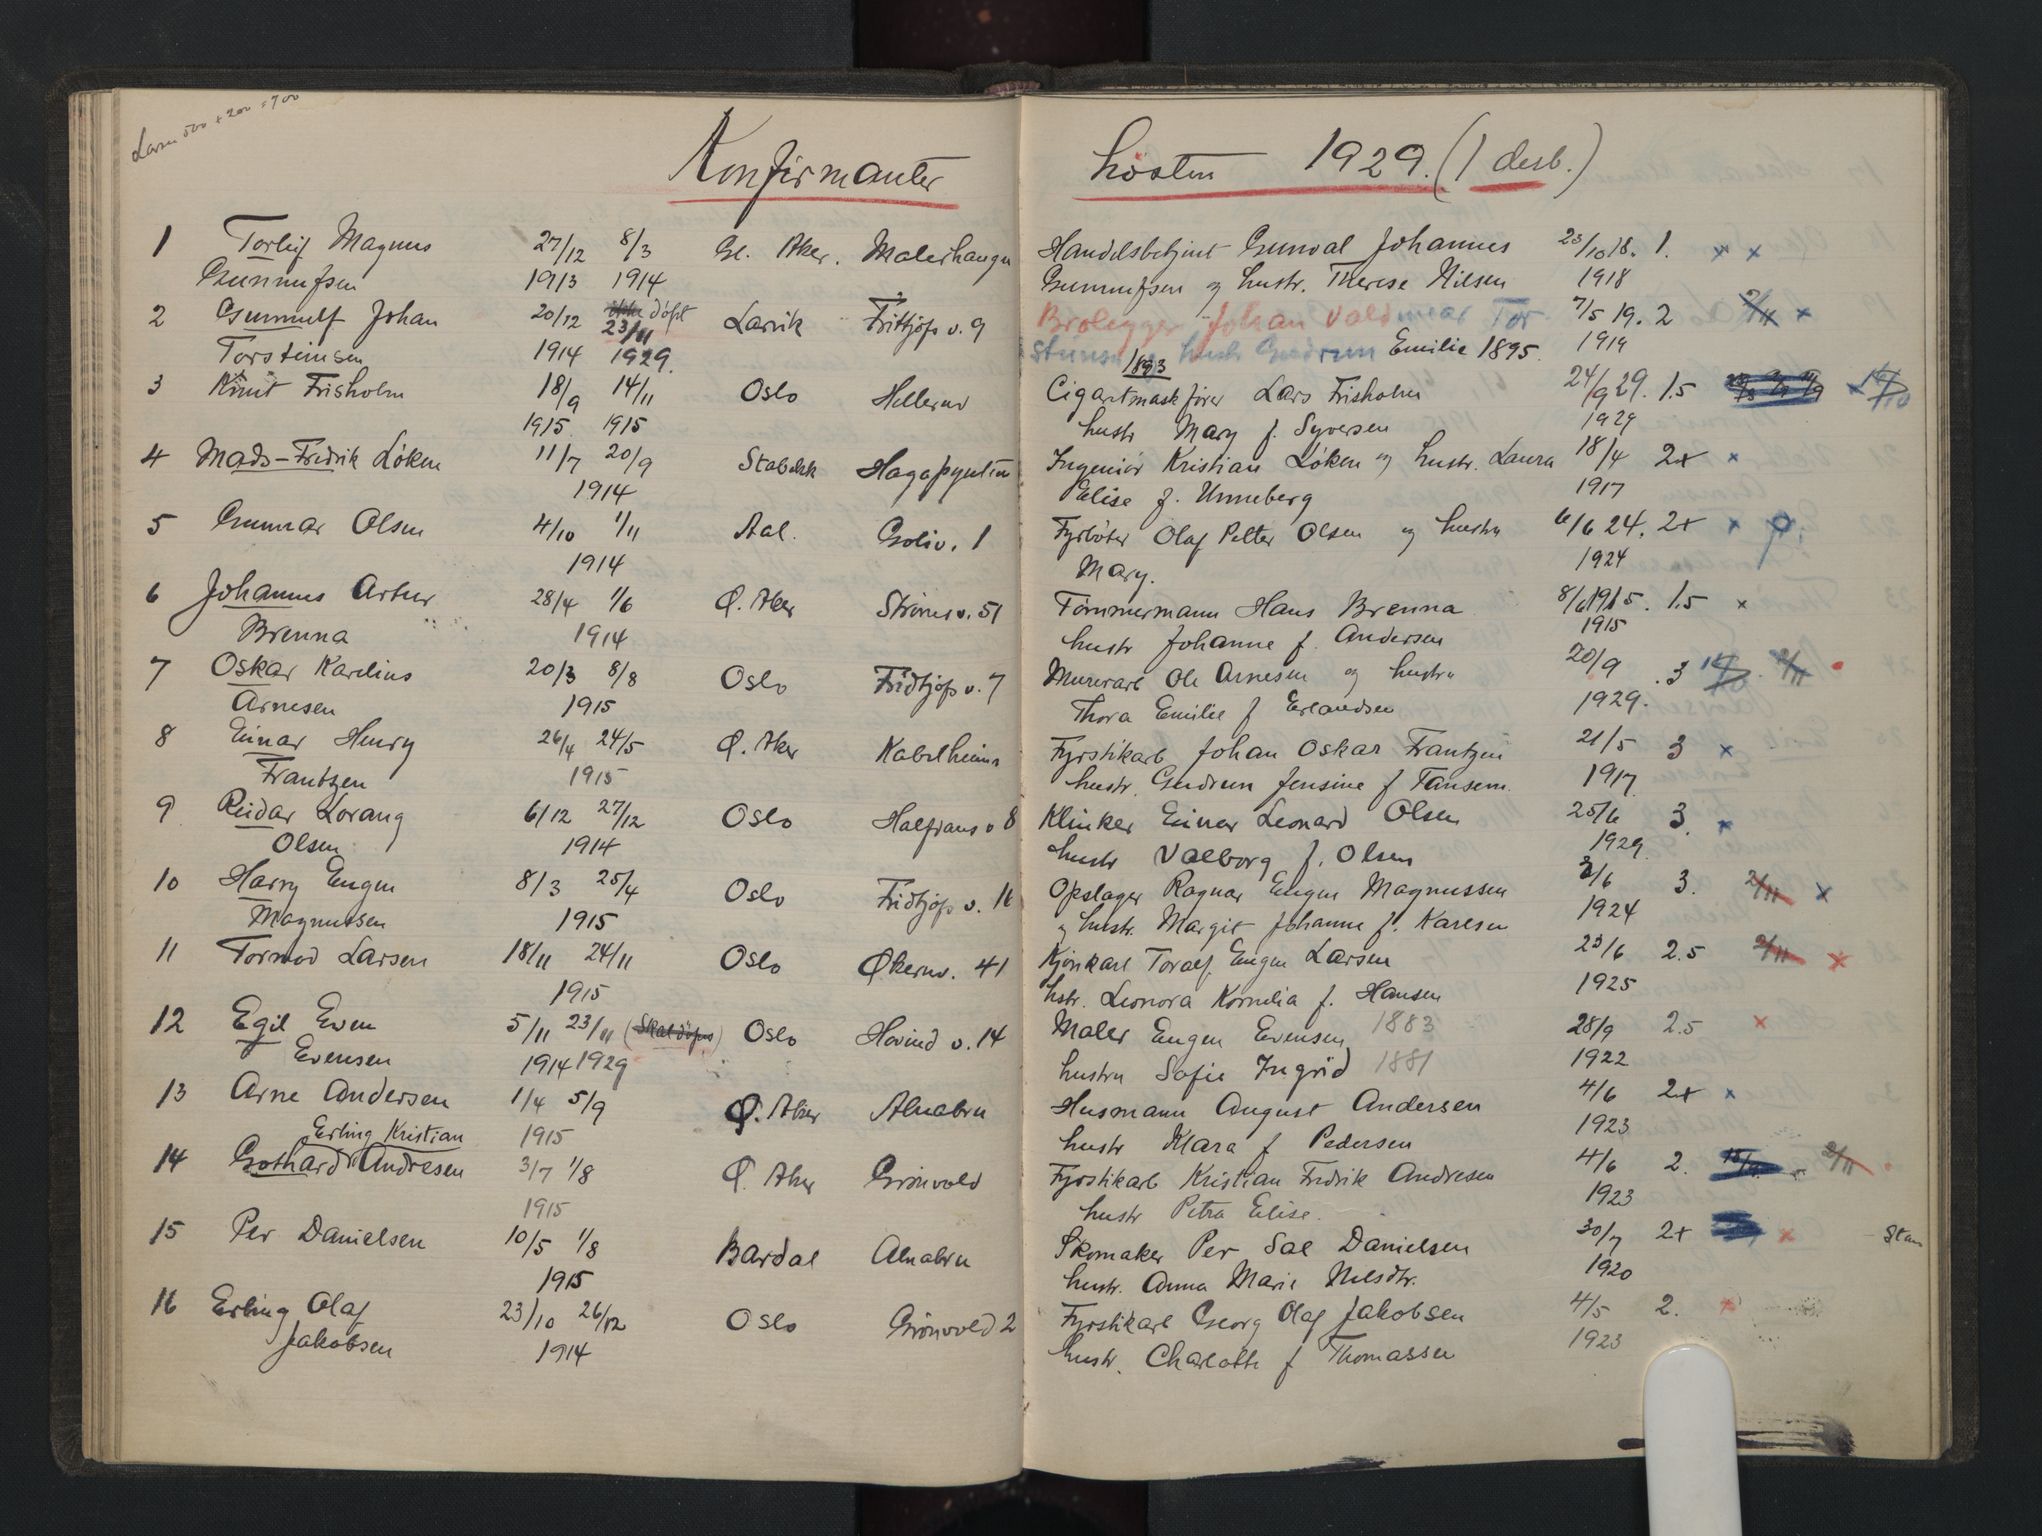 Larsen 500 + 200 = 700
Konfirmanter høsten 1929. (1 desb.)
1 Torleif Magnus 27/12 8/3 Gl. Aker. Malerhaugn Handelsbetjent Gunval Johannes 23/10 18. 1. x x
Gunnufsen 1913 1914 Gunnufsen og hustr. Therese Nilsen 1918
2 Gunnulf Johan 20/12 døpt 23/11 Larvik Fritjofs v. 9 Brolegger Johan Valdmear Tor 7/5 19. 2 2/11 x
Torsteinsen 1914 1929. steinsen 1893 hustr Gudrun Emilie 1895. 1919
3 Knut Frisholm 18/9 14/11 Oslo Hellerud Cigaretmaskfører Lars Frisholm 24/9 29. 1.5 x 14/10
1915 1915 hustr Mary f. Syversen 1929
4 Mads-Fredrik Løken 11/7 20/9 Stabekk Hagapynten Ingeniør Kristian Løken og hustr. Laura 18/4 2x x
1914 Elise f. Unneberg 1917
5 Gunnar Olsen 4/10 1/11 Aal. Goliv. 1 Fyrbøter Olaf Petter Olsen og hustru 6/6 24. 2x x
1914 Mary. 1924
6 Johannes Artur 28/4 1/6 Ø. Aker Strømsv. 51 Tømmermann Hans Brenna 8/6 1915. 1.5 x
Brenna 1914 hustr Johanne f. Andersen 1915
7 Oskar Karelius 20/3 8/8 Oslo Fridtjofs v. 7 Murerarb Ole Arnesen og hustru 20/9 .3 14/10 2/11
Arnesen 1915 Thora Emilie f Erlandsen 1929.
8 Einar Henry 26/4 24/5 Ø. Aker Kabelheimen Fyrstikarb Johan Oskar Frantzen 21/5 3 x
Frantzen 1915 hustr. Gudrun Jensine f Tansem. 1917
9 Reidar Lorang 6/12 27/12 Oslo Halfdans v 8 Klinker Einar Leonard Olsen 25/6 3. x
Olsen 1914 hustr Valborg f. Olsen 1929
10 Harry Eugen 8/3 25/4 Oslo Fridtjofs v. 16 Opslager Ragnar Eugen Magnussen 2/6 3. 2/11 x
Magnussen 1915 og hustr. Margit Johanne f. Karlsen 1924
11 Tormod Larsen 18/11 24/11 Oslo Økernv. 41 Kjørekarl Toralf Eugen Larsen 23/6 2.5 2/11 x
1915 hstr. Leonora Kornelia f. Hansen 1925
12 Egil Even 5/11 23/11 (Skal døpes) Oslo Hovind v. 14 Maler Eugen Evensen 1883 28/9 2.5 x
Evensen 1914 1929 hustru Sofie Ingrid 1881 1922
13 Arne Andersen 1/4 5/9 Ø. Aker Alnabru Husmann August Andersen 4/6 2x x
Erling Kristian 1915 hustr Klara f Pedersen 1923
14 Gothard Andresen 3/7 1/8 Ø. Aker Grønvold Fyrstikarb Kristian Fredrik Andresen 4/6 2. 2/11
1915 hustr Petra Elise. 1923
15 Per Danielsen 10/5 1/8 Bardal Alnabru Skomaker Per Sal Danielsen 30/7 2x x
1915 hustr. Anna Marie Nilsdtr. 1920
16 Erling Olaf 23/10 26/12 Oslo Grønvold 2 Fyrstikarb Georg Olaf Jakobsen 4/5 2. x
Jakobsen 1914 hustr. Charlotte f Thomassen 1923